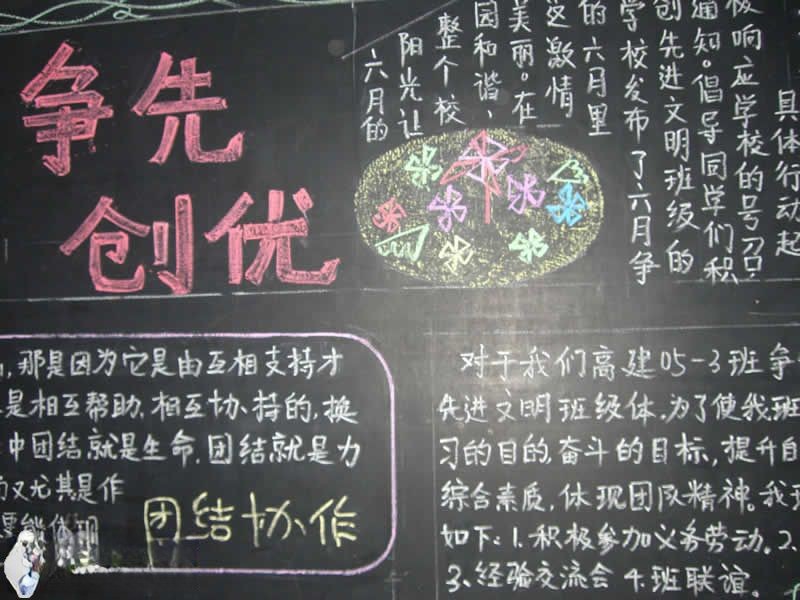 争先
创优
六月的
阳光让
整个校
园和谐、
美丽。在
这激情
的六月里
学校发布了六月争
创先进文明班级的
通知。倡导同学们积
极响应学校的号召
具体行动起
那是因为它是由互相支持才
是相互帮助,相互协持的,换
中团结就是生命,团结就是力
又尤其是作
团结协作
对于我们高建05-3班争
先进文明班级体,为了使我班
习的目的,奋斗的目标,提升自
综合素质,体现团队精神。我
如下:1.积极参加义务劳动。2.
3.经验交流会 4.班联谊。